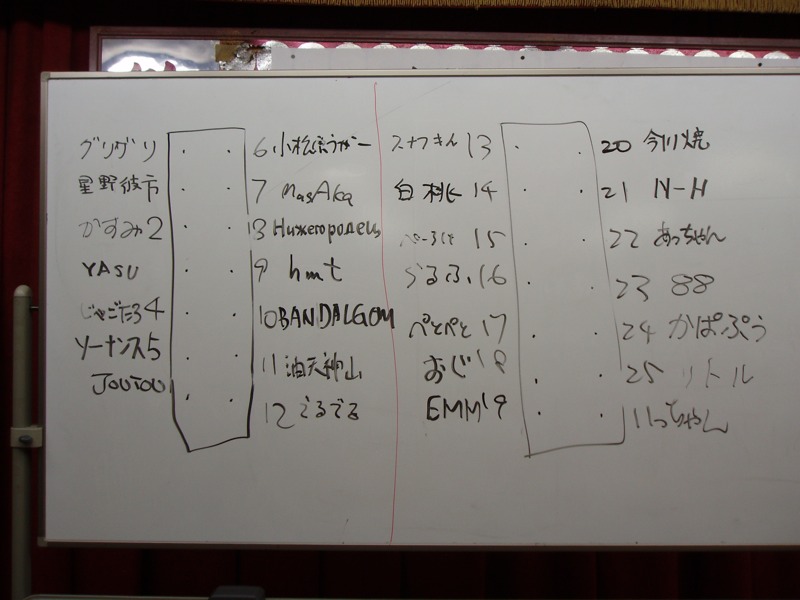 グリグリ
星野彼方
かすみ2
YASU
じゃごたろ4
ソーナンス5
JOUJOU
6 小松ほうがー
7 MasAka
13 Нижегородець
9 hmt
10 BANDALGOM
11 油天神山
12 でるでる
スナフキん 13
白桃 14
15
らるふ 16
ぺとぺと 17
おじ 18
EMM 19
20 今川焼
21 N-H
22 あっちゃん
23 88
24 かぱぷう
25 リトル
いっちゃん